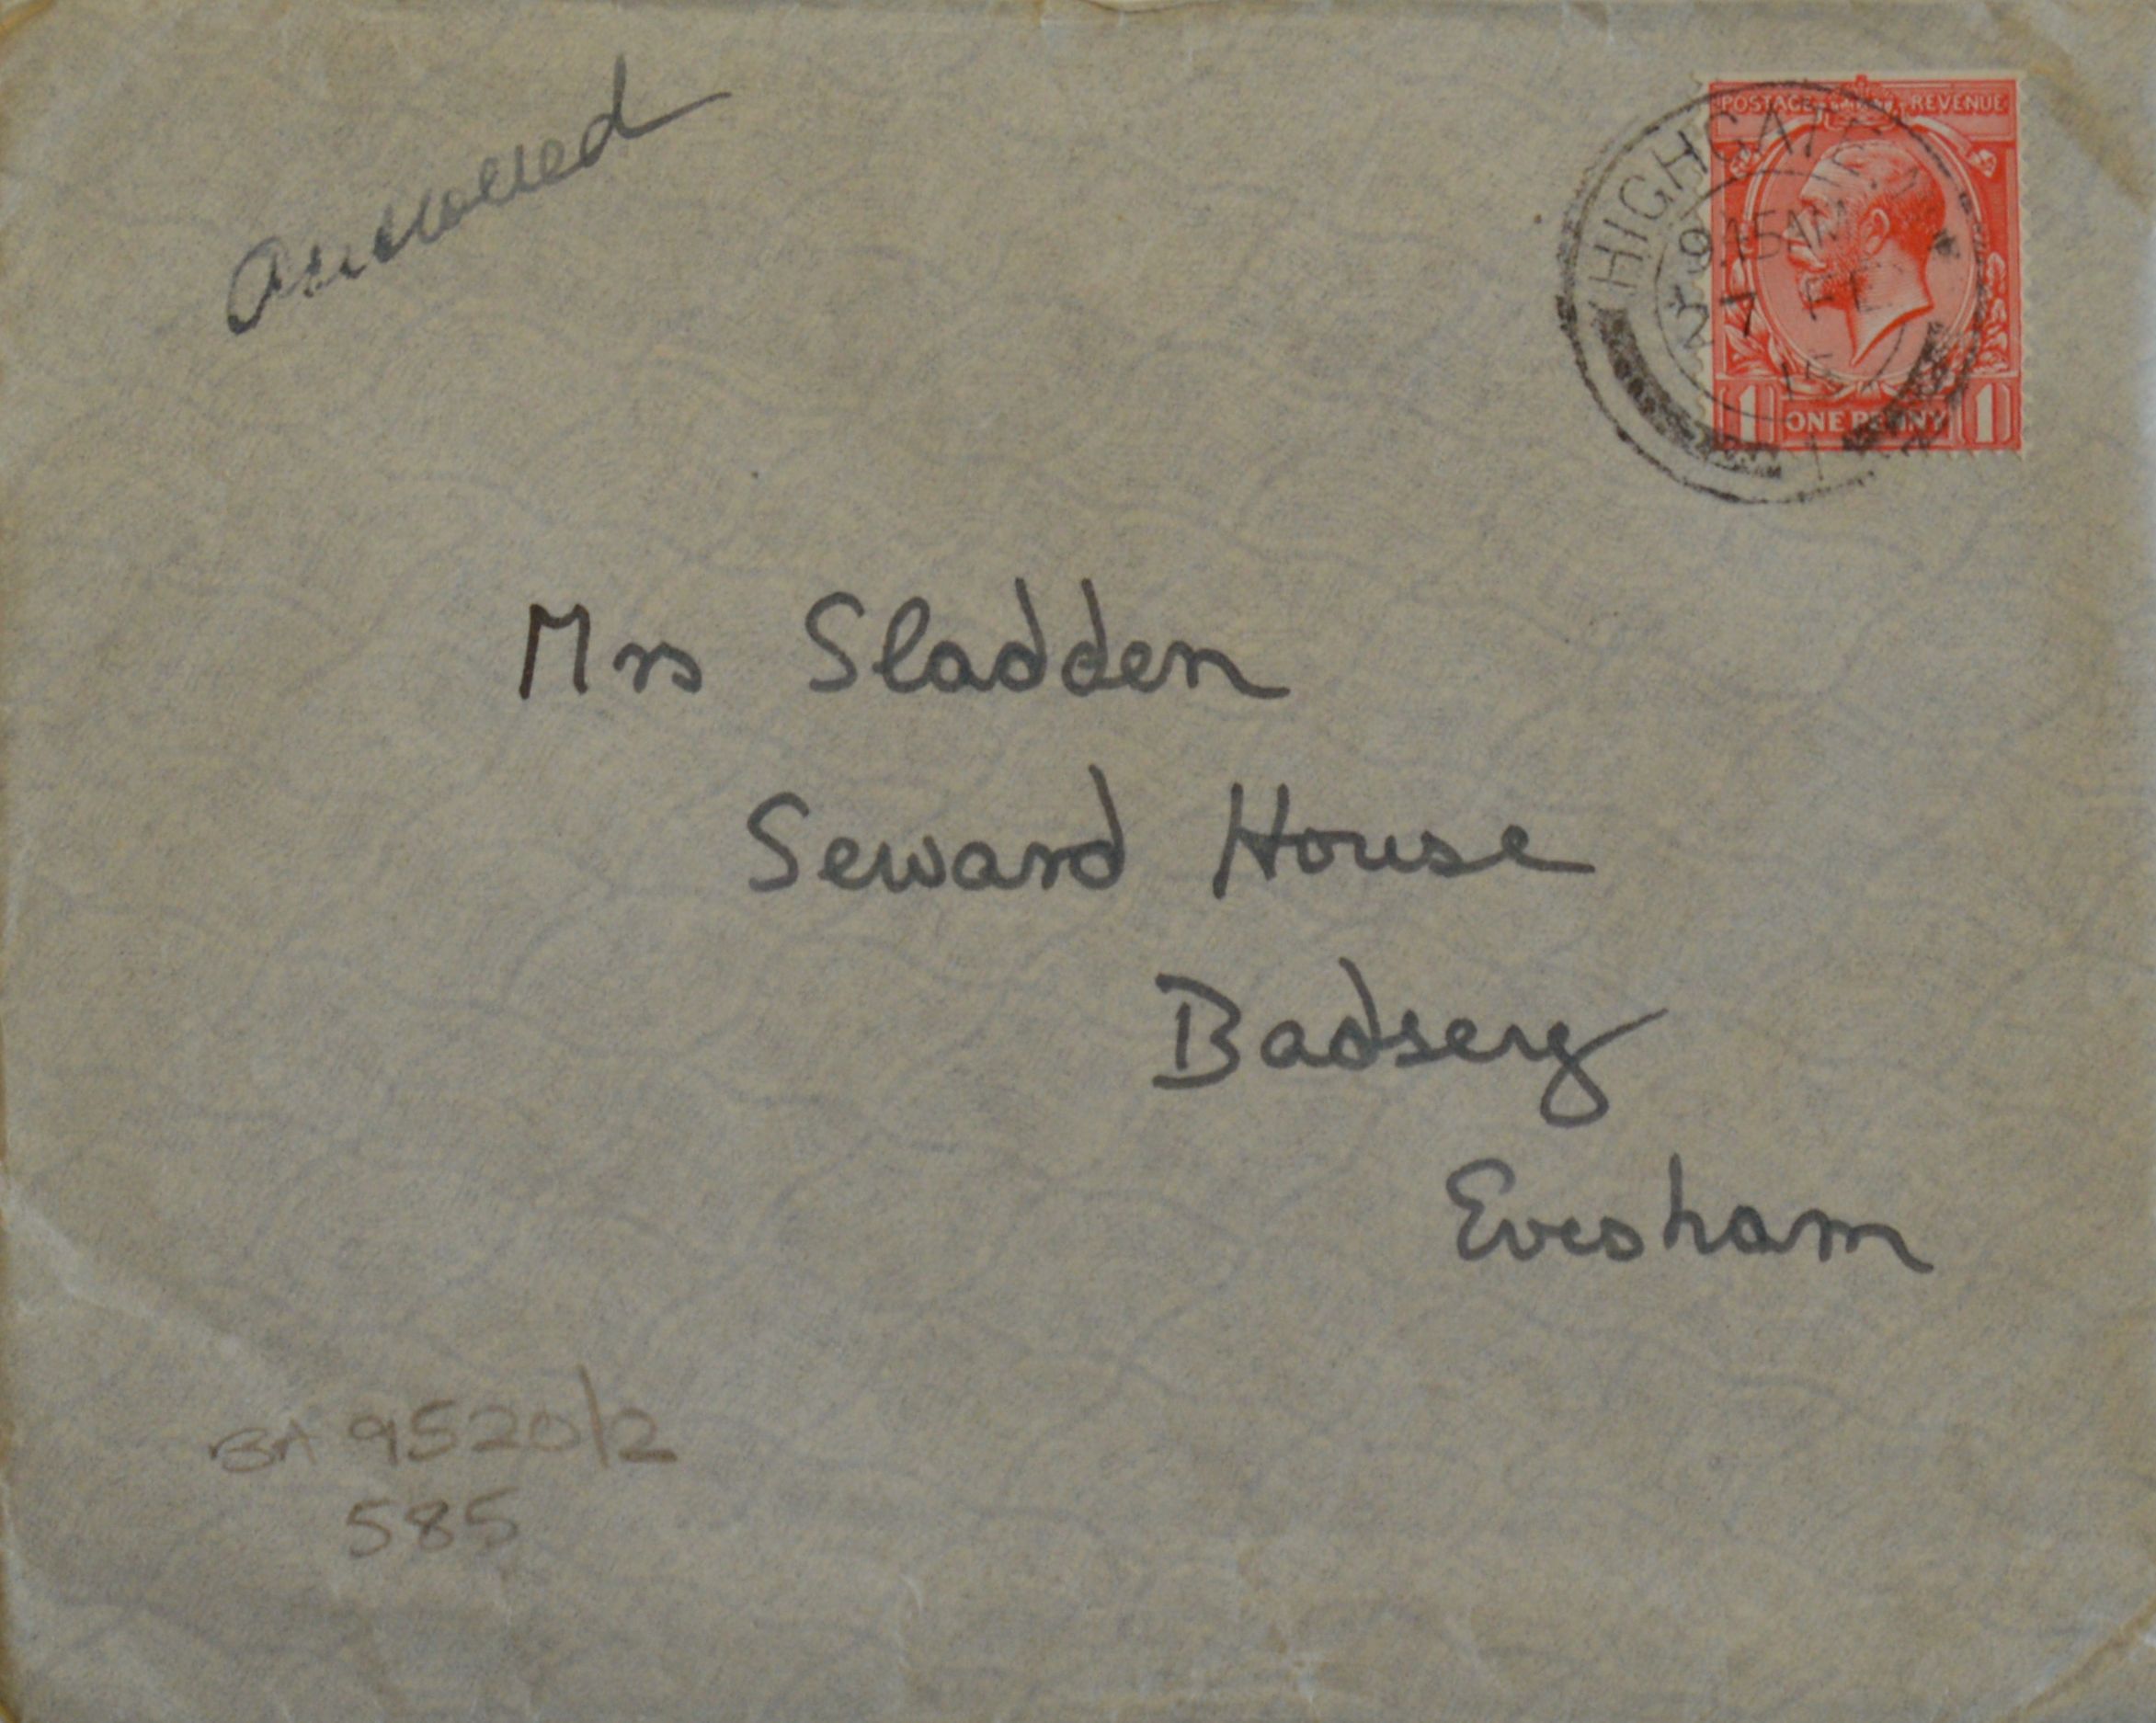 Answered
POSTAGE REVENUE
HIGHGATE
9.15AM
27 FE
16
ONE PENNY
1 1
Mrs Sladden
Seward House
Badsey
Evesham
BA 9520/2
585